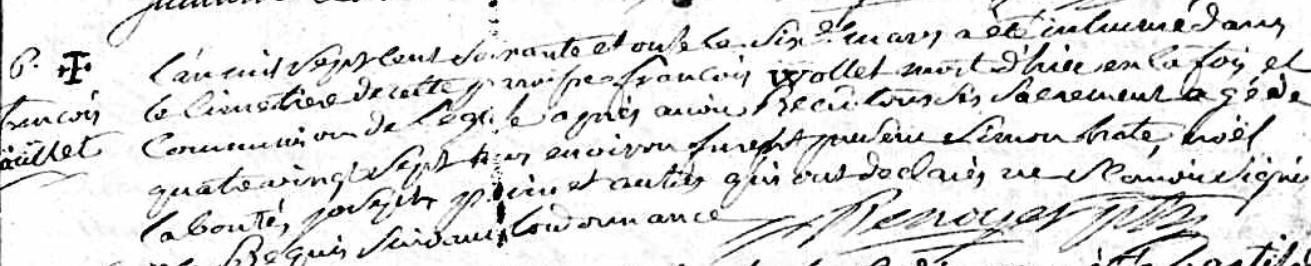 6. françois
L'an mil sept cent soixante et onze le six de mars a été inhumé dans
le cimetiere de cette paroisse françois wollet mort d'hier en la foy et
Communion de l'eglise apres avoir Reçu tous ses sacrement agé de
quatre vingt sept ans environ furent present simon, noël
labonté, joseph et autres qui ont declarés ne sçavoir signer
de Requis suivant l'ordonnance